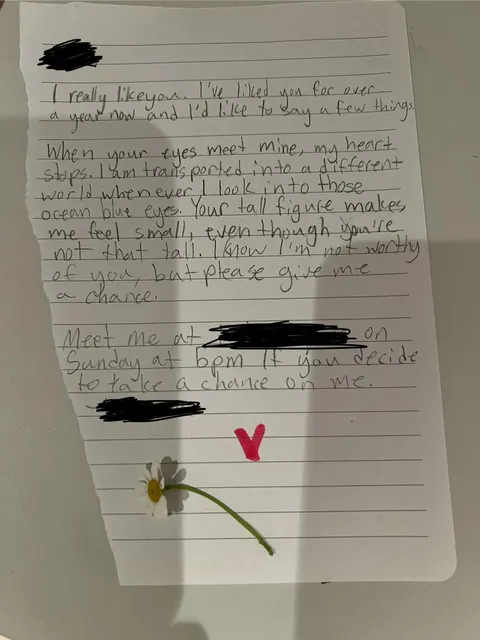 I really like you. I've liked you for over
a year now and I'd like to say a few things.
When your eyes meet mine, my heart
stops. I am transported into a different
world whenever I look into those
ocean blue eyes. Your tall figure makes
me feel small, even though you're
not that tall. I know I'm not worthy
of you, but please give me
a chance.
Meet me at on
Sunday at 6pm If you decide
to take a chance on me.